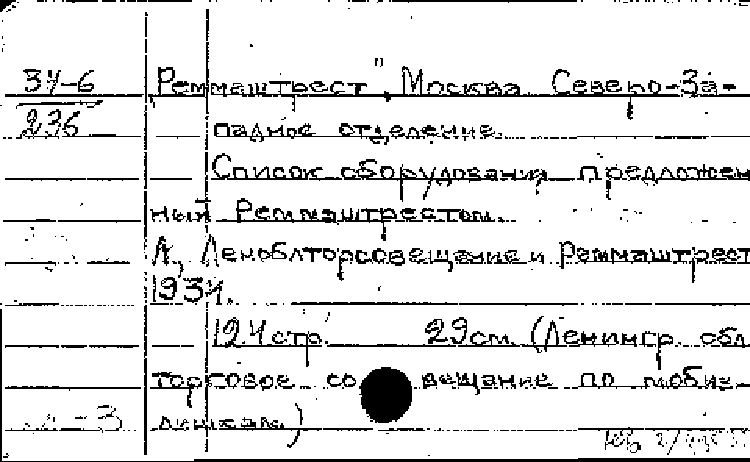 34-6
236
„Реммаштрест", Москва. Северо-За-
падное отделение.
Список оборудования, предложен
ный Реммаштрестом.
Л., Леноблторгсовещание и Реммаштрест
1934.
124 стр. 29 см. (Ленингр. обл
торговое со вещание по